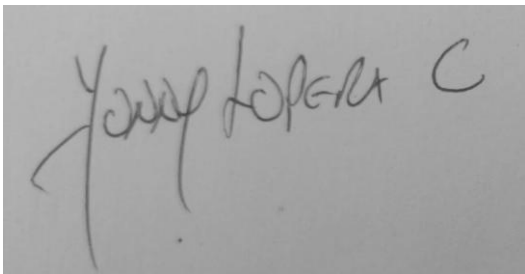 Yonny Lopera C